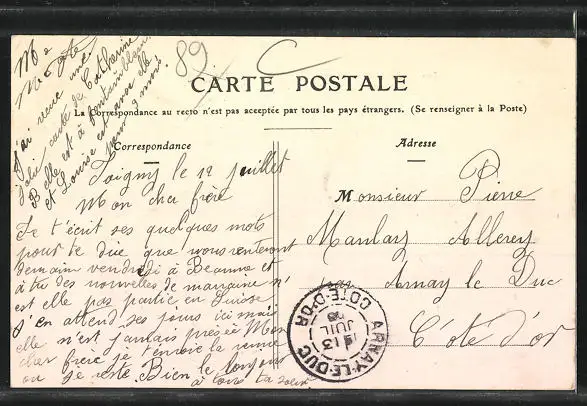 89
CARTE POSTALE
La Correspondance au recto n'est pas acceptée par tous les pays étrangers. (Se renseigner à la Poste)
Correspondance
le 12 juillet
Mon cher frère
Je t'écrit ses quelques mots
pour te dire que nous renteront
demain vendredi à Beaune et
à tu des nouvelles de marraine n'
est elle pas partie en Suisse
J'en attend ses jours ici mais
elle n'est jamais pressée Mon
cher frère je t'envoie la
ou je reste Bien le bonjour
à tous ta soeur
J'ai reçue une
jolie carte de Catherine
Elle est à
et Louise est avec elle
pour 3 mois
Adresse
Monsieur Pierre
Allerey
par Arnay le Duc
Côte d'or
ARNAY-LE-DUC
COTE-D'OR
13
JUIL